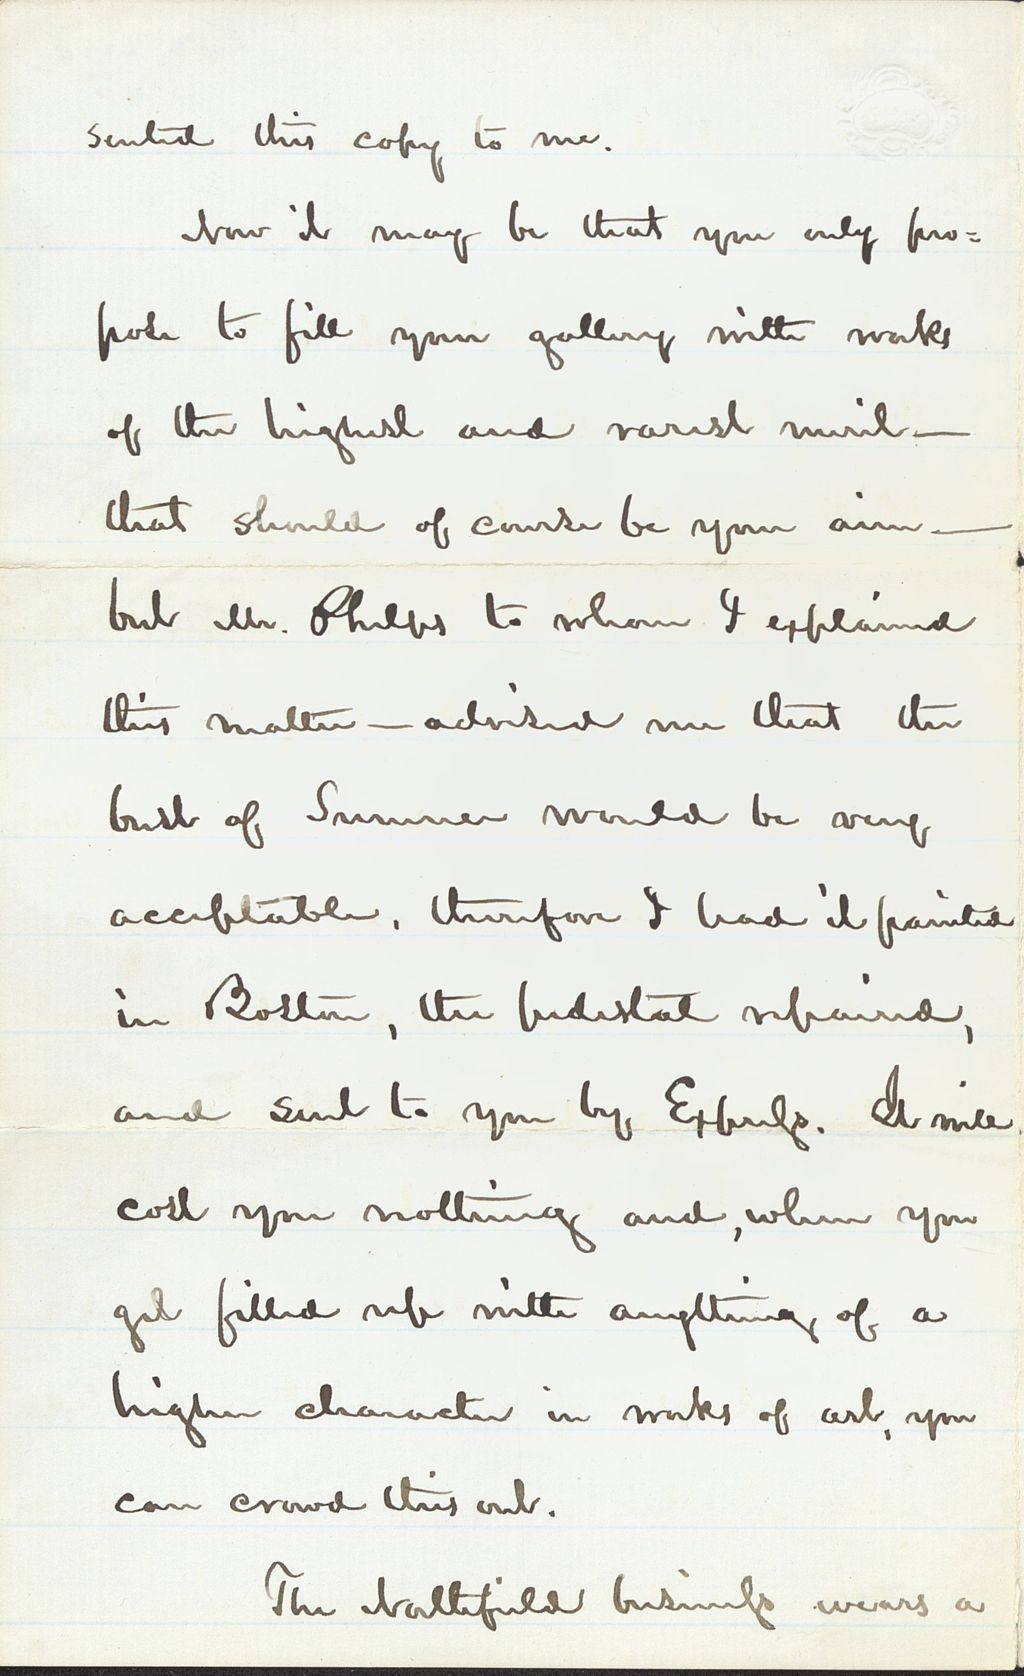 sented this copy to me.
Now it may be that you only pro=
pose to fill your gallery with works
of the highest and rarest merit—
that should of course be your aim—
but Mr. Phelps to whom I explained
this matter—advised me that the
bust of Sumner would be very
acceptable, therefore I had it painted
in Boston, the pedestal repaired,
and sent to you by Express. It will
cost you nothing and, when you
get filled up with anything of a
higher character in works of art, you
can crowd this out.
The Northfield business wears a